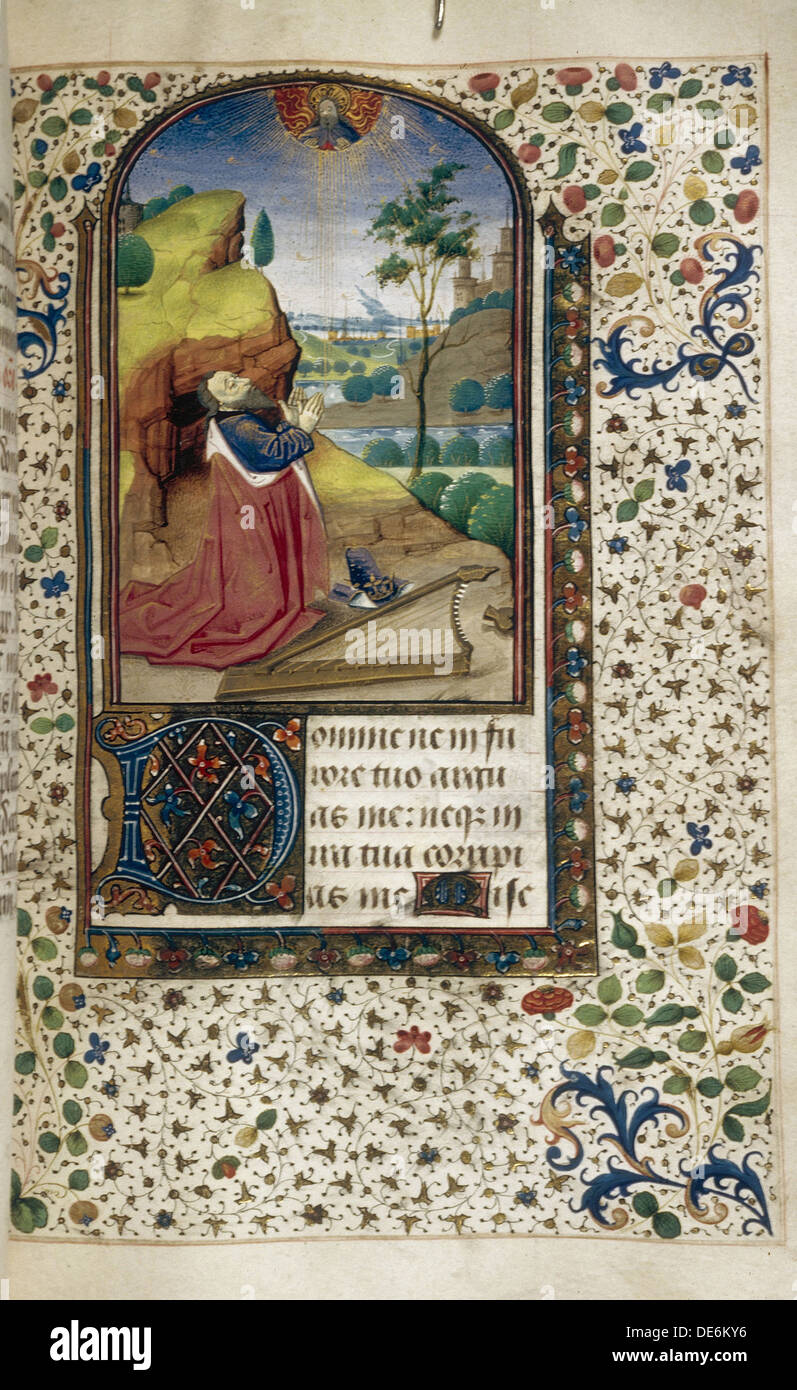 Domine ne in fu
rore tuo argu
as me: neq; in
ira tua corripi
as me Mise
alamy
Image ID: DE6KY6
www.alamy.com